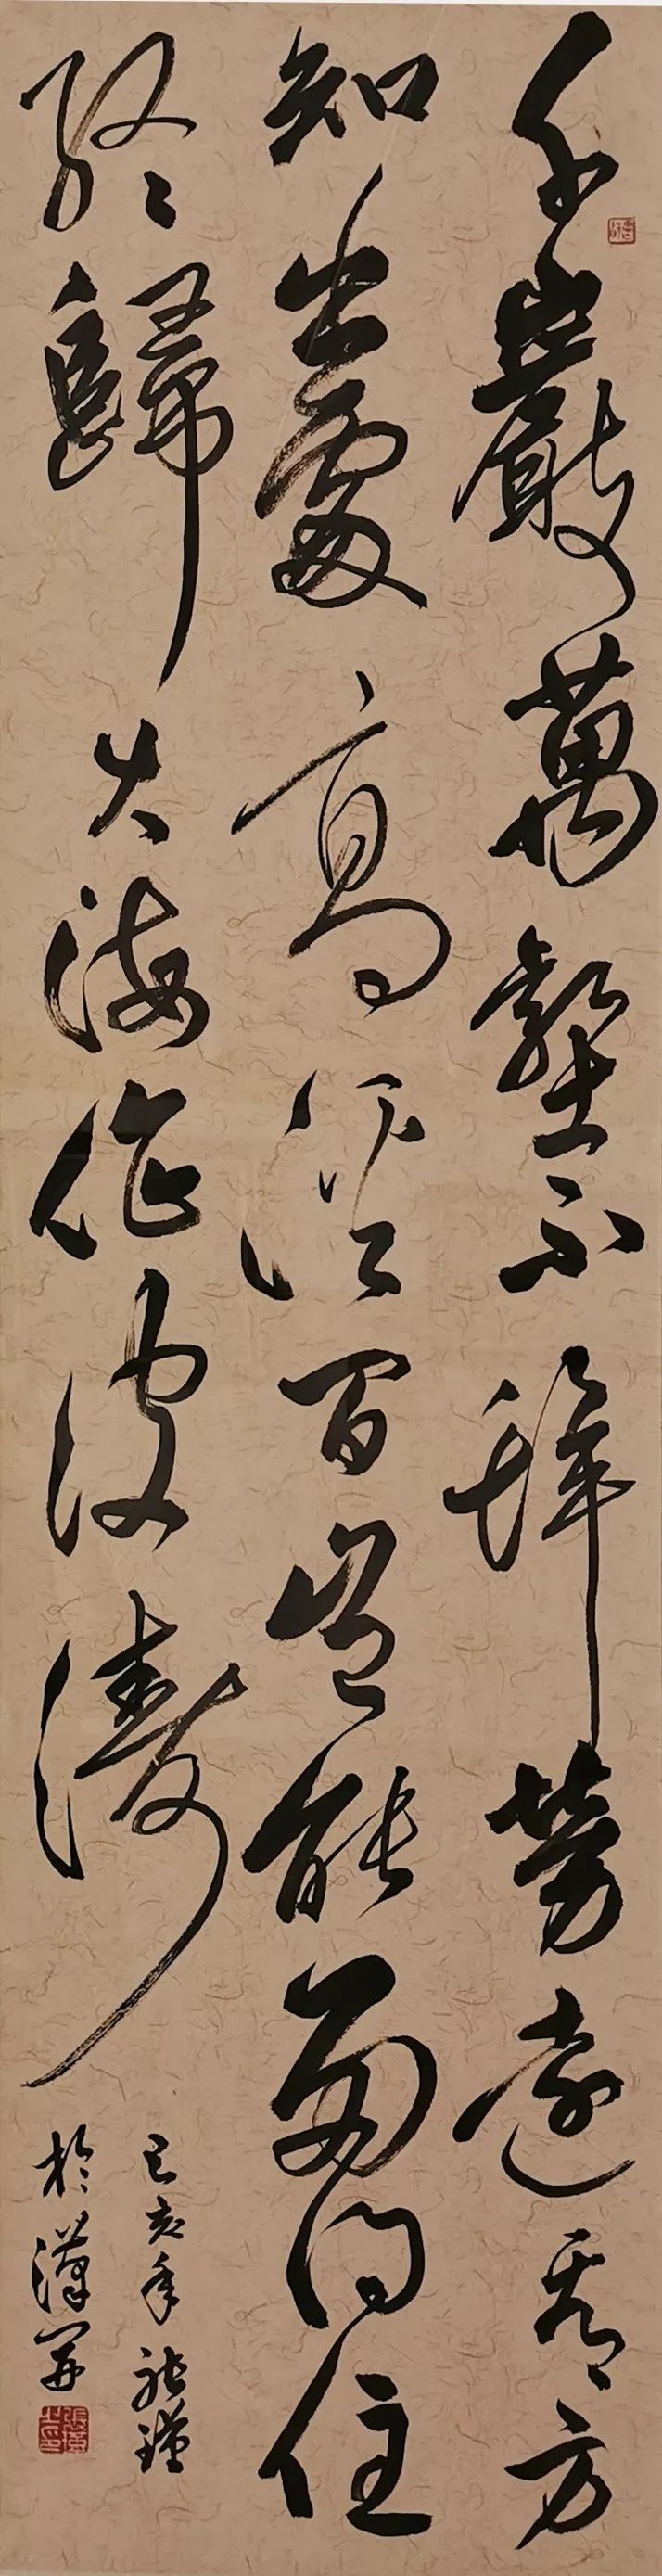 千巖萬壑不辭勞遠看方
知出處高溪澗豈能留得住
終歸大海作波濤
己亥年張瑾
於漢